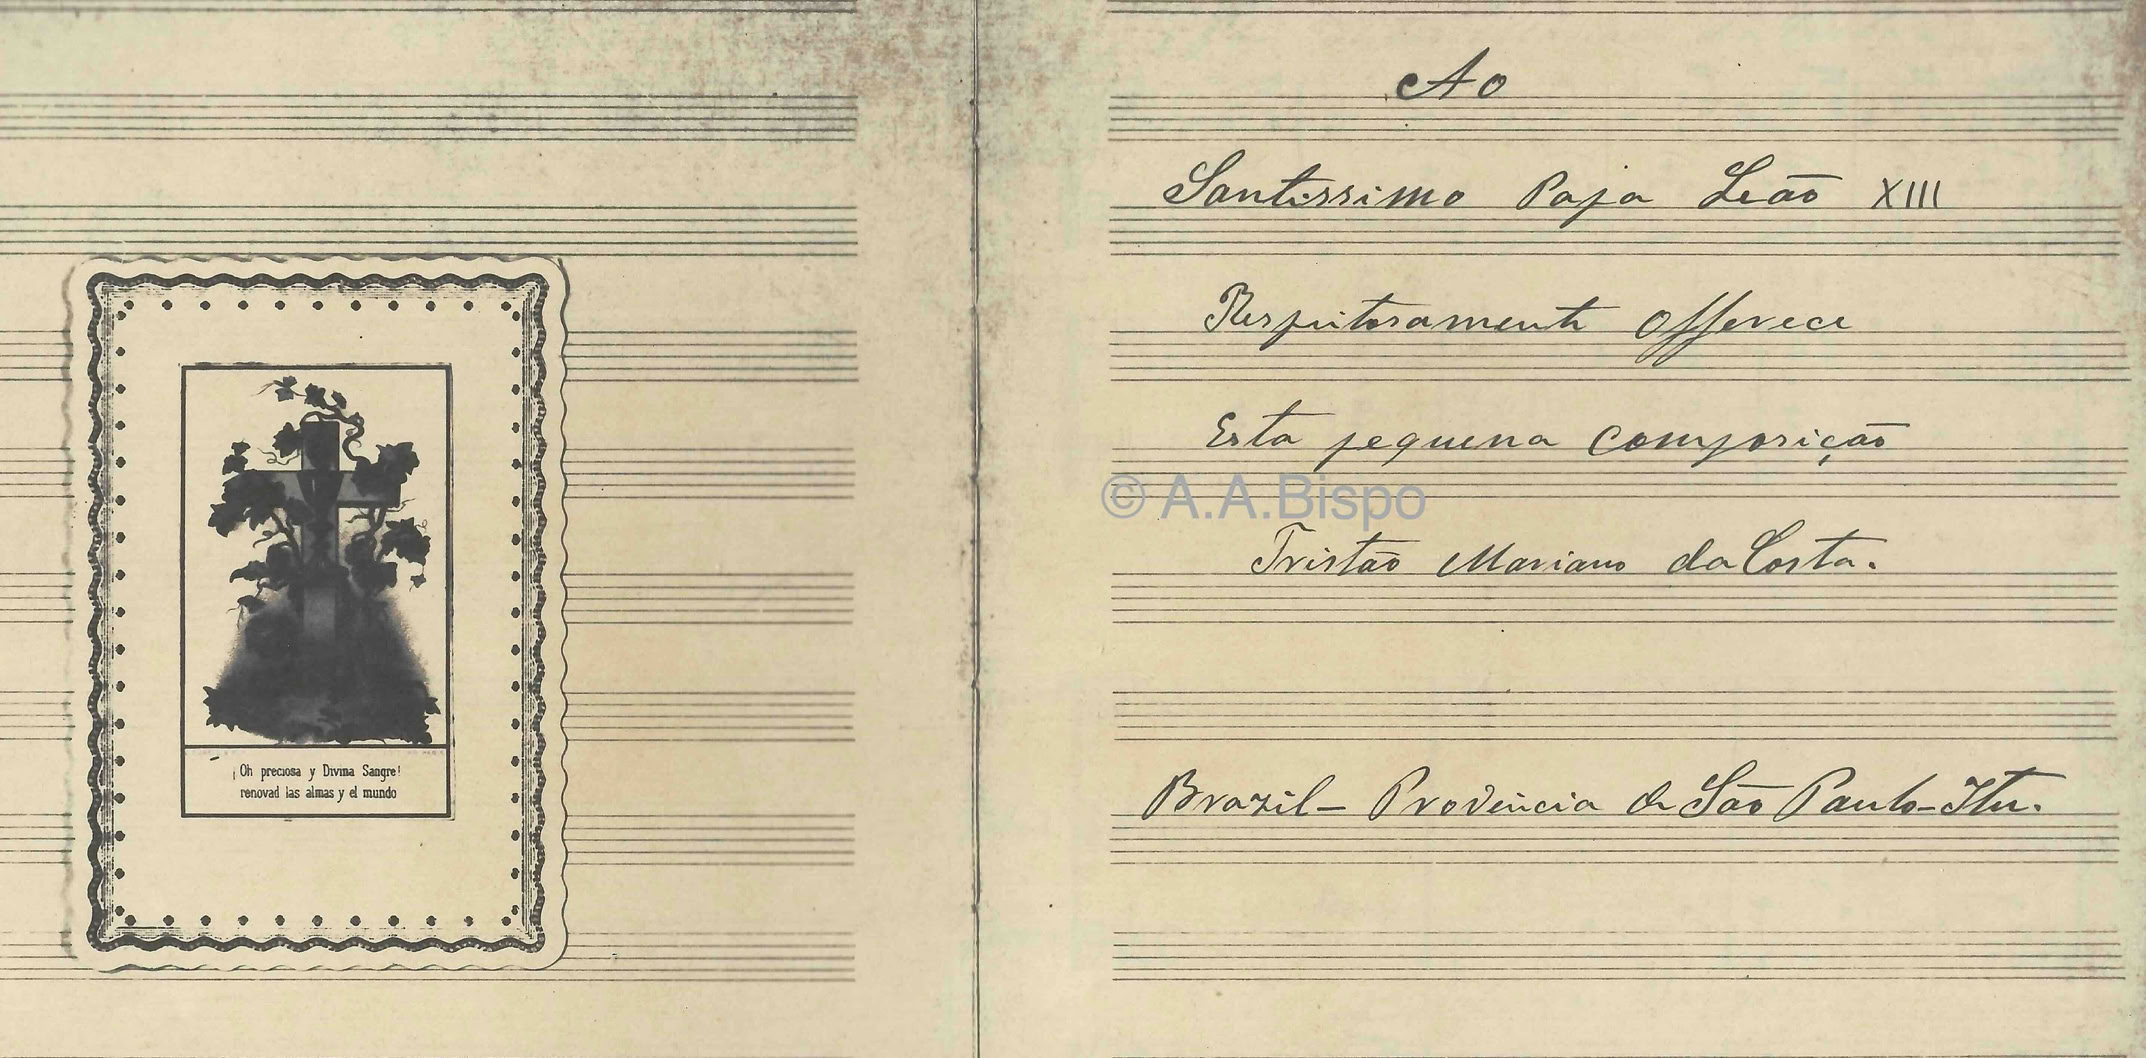 ¡Oh preciosa y Divina Sangre!
renovad las almas y el mundo
Ao
Santissimo Papa Leão XIII
Respeitosamente offerece
Esta pequena Composição
© A.A.Bispo
Tristão Mariano da Costa.
Brazil - Provincia de São Paulo - Itu.